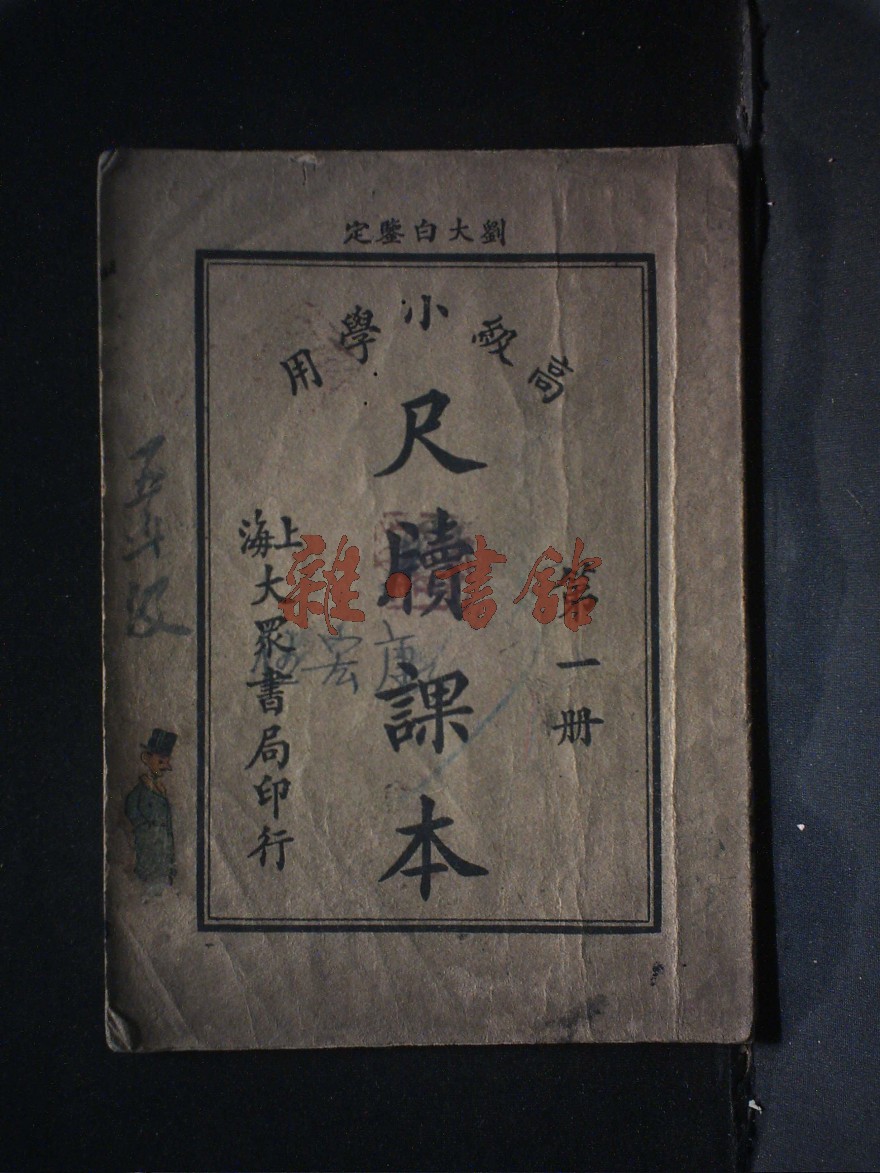 劉大白鑒定
高級小學用
第一册
尺牘課本
上海大眾書局印行
五年级
雜·書館